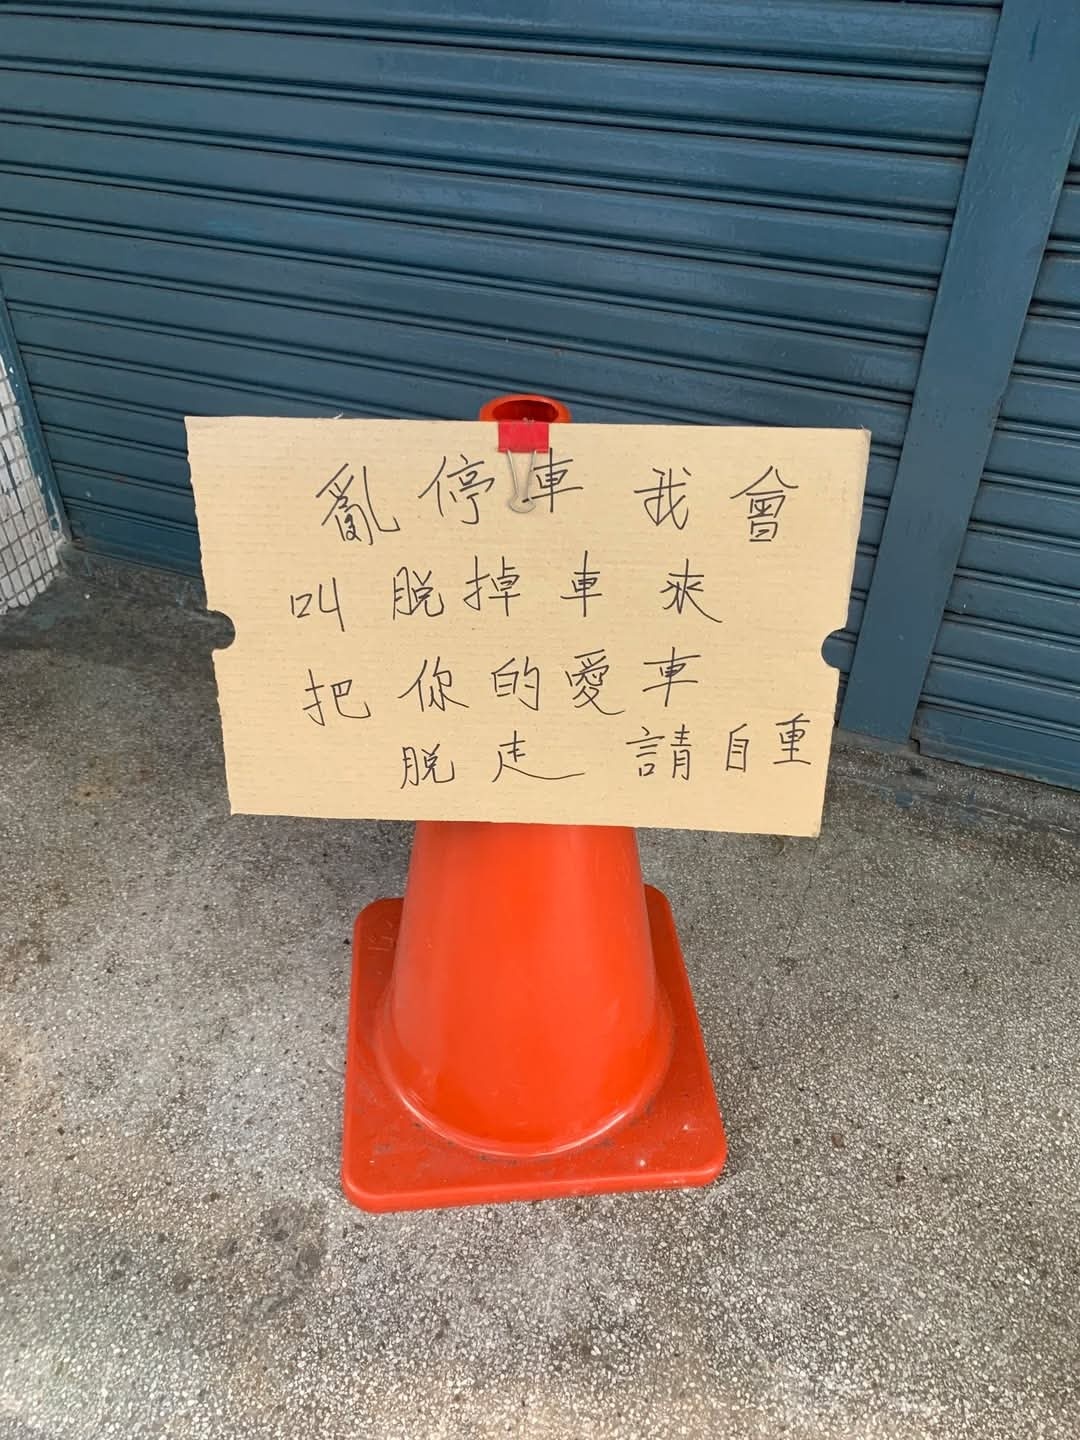 亂停車 我會
叫脫掉車來
把你的愛車
脫走 請自重